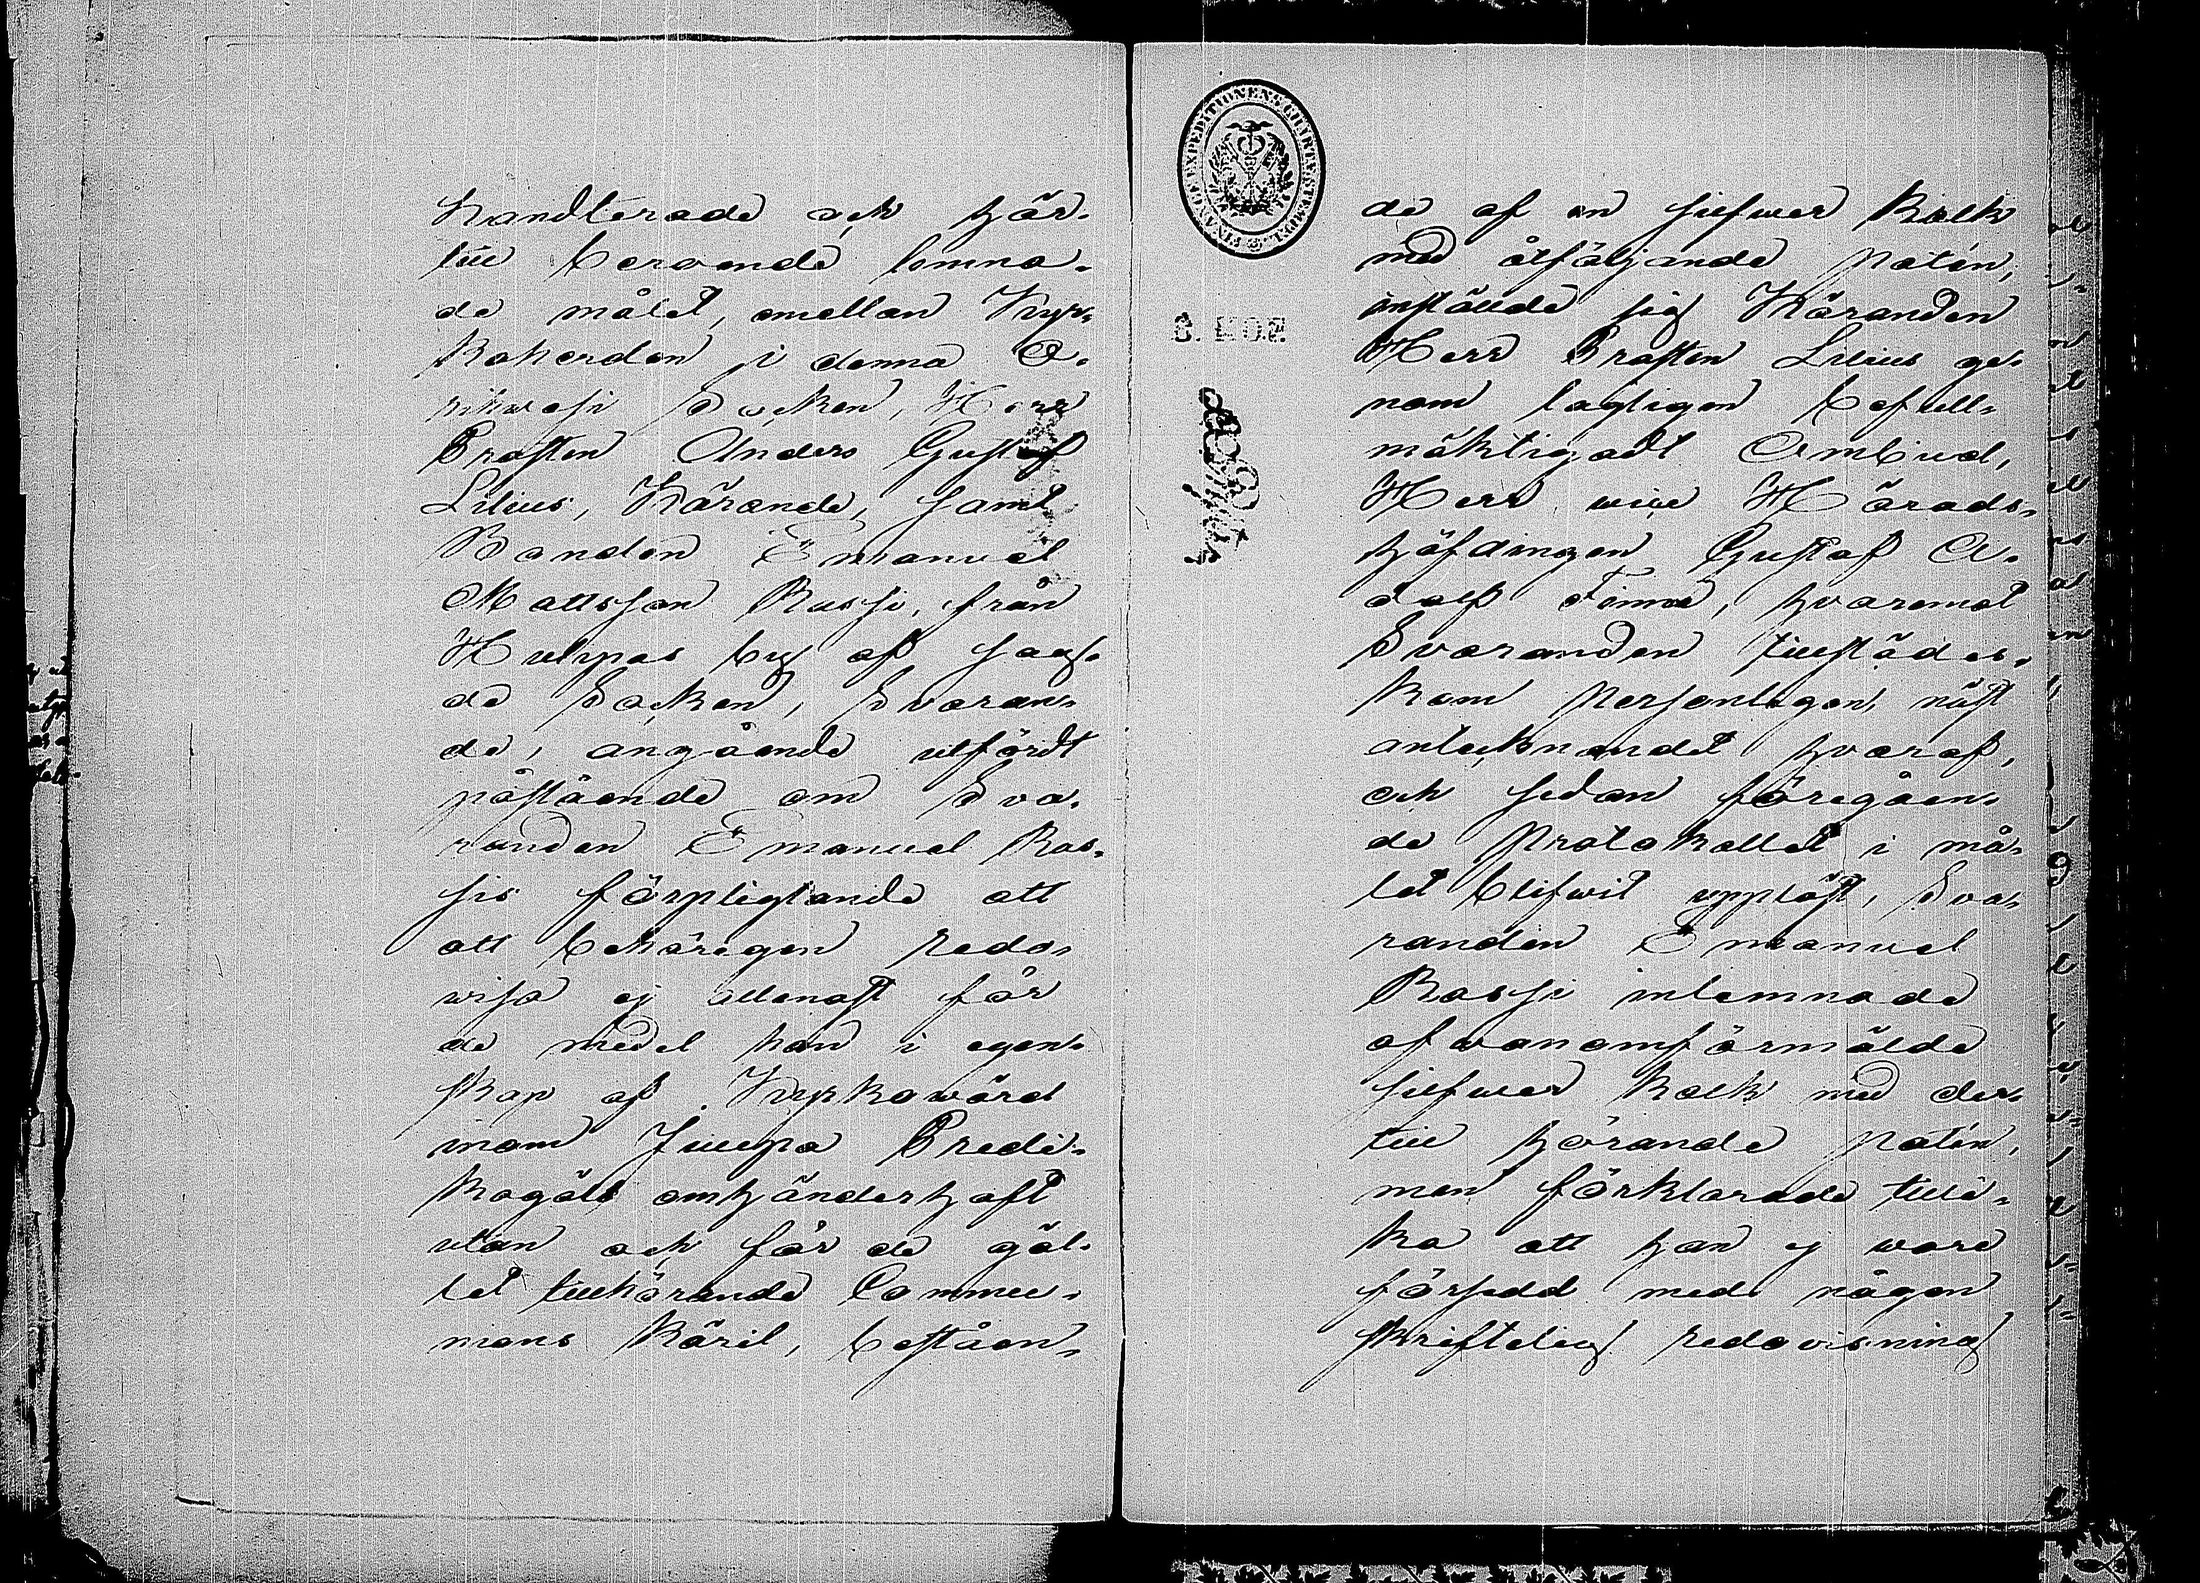 handterade och här-
till beroende lemna-
de målet, emellan Kyr-
koherden i denna O-
rihvesi Socken, Herr
Prosten Anders Gustaf
Lilius, Kärande, samt
Bonden Emanuel
Mattsson Rossi, från
Hulpas by af sag-
de Socken, Svaran-
de, angående utfördt
påstående om Sva-
randen Emanuel Ros-
sis förpligtande att
att behörigen redo-
visa ej allenast för
de medel han i egen-
skap af Kyrkovärd
inom Juupa Predi-
kogäld omhänderhaft
utan och för de gäl-
let tillhörande Commu-
nions Käril, beståen-
FINANCE EXPEDITIONENS CHARTÆ STEMPEL.
de af en silfwer Kalk
med åtföljande paten,
instälde sig Käranden
Herr Prosten Lilius ge-
nom lagligen befull-
mäktigadt Ombud,
Herr vice Härads-
höfdingen Gustaf A-
dolf, hvaremot
Svaranden tillstädes-
kom personligen, näst
antecknandet hvaraf,
och sedan föregåen-
de Protokollet i må-
let blifwit uppläst, Sva-
randen Emanuel
Rossi inlemnade
ofvanomförmälde
silfwer Kalk med der-
till hörande paten,
men förklarade tilli-
ka att han ej vore
försedd med någon
skriftelig redovisning